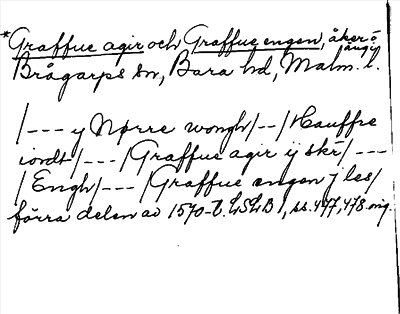 *Graffue agir och Graffue engen, åker o ängi
Brågarps sn, Bara hd, Malm. l.
/--- y Nørre wongh/--/Hauffre
iordt/---/Graffue agir ij skr/---
/Engh/---/Graffue engen j les/
förra delen av 1570-t. LSLB 1, ss. 477, 478. orig.